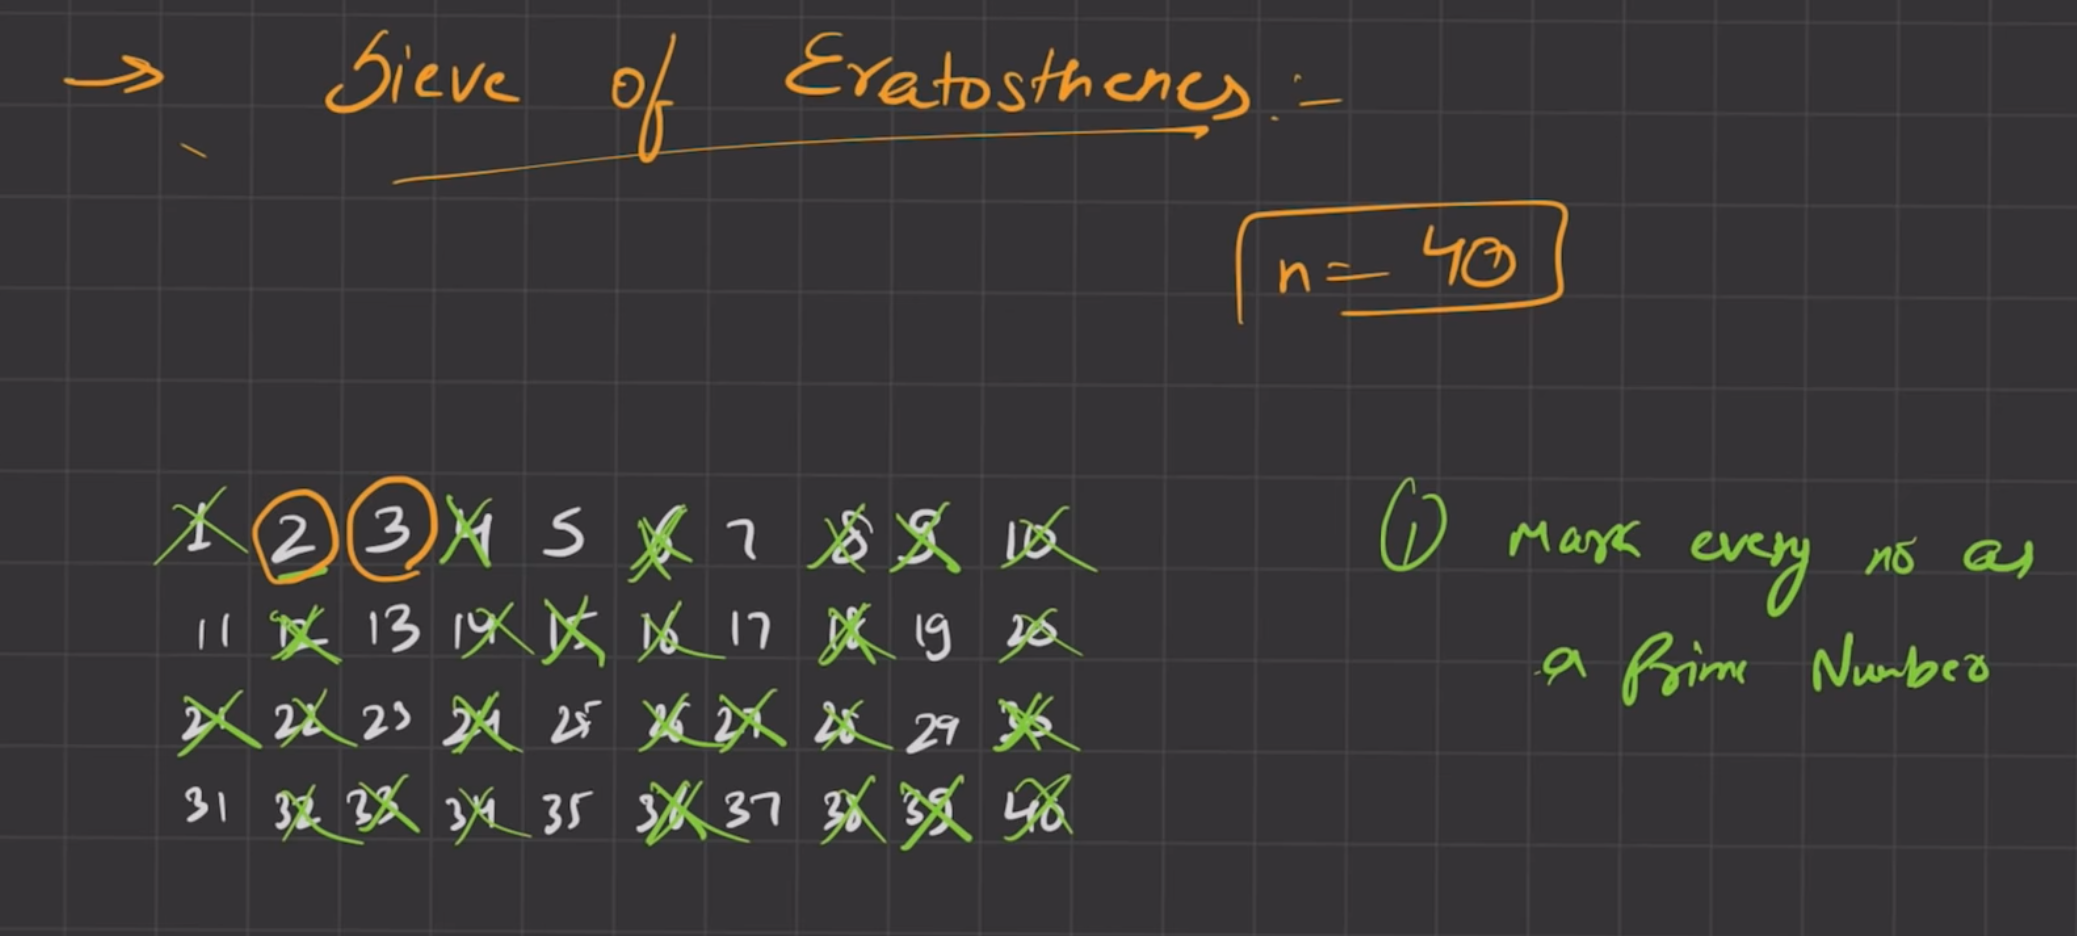 → Sieve of Eratosthenes :-
n = 40
1 2 3 4 5 6 7 8 9 10
11 12 13 14 15 16 17 18 19 20
21 22 23 24 25 26 27 28 29 30
31 32 33 34 35 36 37 38 39 40
① Mark every no as
a Prime Number